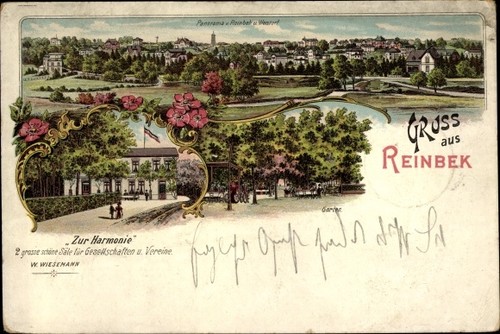 Panorama v. Reinbek u. Wentorf.
Gruss
aus
Reinbek
Garten
„Zur Harmonie"
2 grosse schöne Säle für Gesellschaften u. Vereine.
W. WIESEMANN